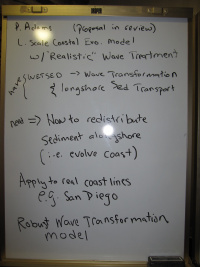 P. Adams (Proposal in review)
L. Scale Coastal Evo. Model
w/ "Realistic" Wave Treatment
have { WETSED -> Wave Transformation
{ longshore Sed Transport
need => How to redistribute
Sediment alongshore
(i.e. evolve coast)
Apply to real coastlines
e.g. San Diego
Robust Wave Transformation
model